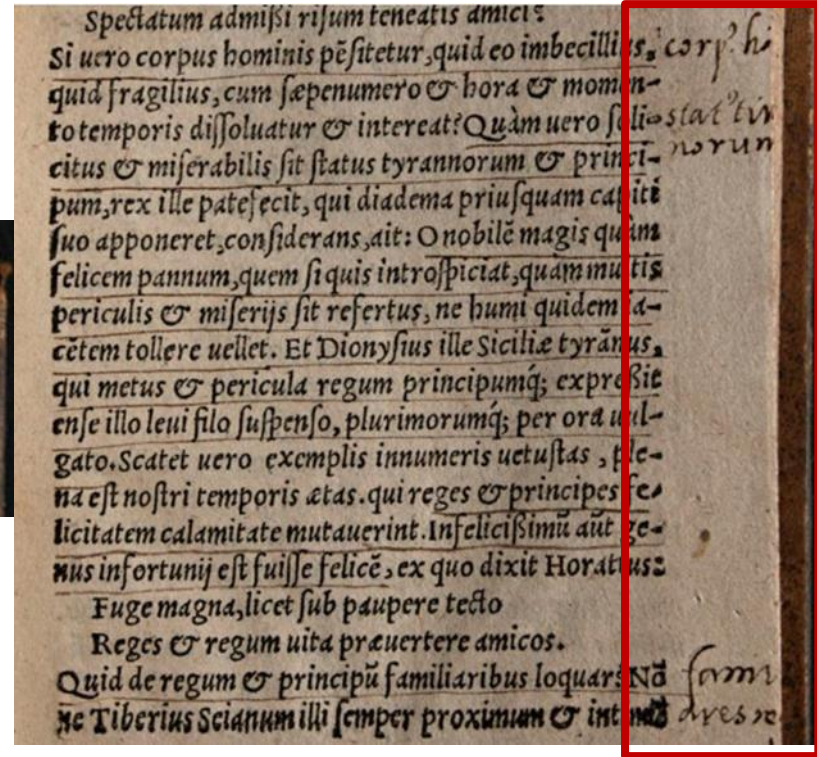 Spectatum admißi riſum teneatis amici?
Si uero corpus hominis pẽſitetur, quid eo imbecillius, corp' hi
quid fragilius, cum ſæpenumero & hora & momen-
to temporis diſſoluatur & intereat? Quàm uero ſoli- stat' tir
citus & miſerabilis ſit ſtatus tyrannorum & princi- norun
pum, rex ille patefecit, qui diadema priuſquam capiti
ſuo apponeret, conſiderans, ait: O nobilẽ magis quàm
felicem pannum, quem ſi quis introſpiciat, quàm multis
periculis & miſerijs ſit refertus, ne humi quidem ia-
cẽtem tollere uellet. Et Dionyſius ille Siciliæ tyrãnus,
qui metus & pericula regum principumq́; expreßit
enſe illo leui filo ſuſpenſo, plurimorumq́; per ora uul-
gato. Scatet uero exemplis innumeris uetuſtas, ple-
na eſt noſtri temporis ætas. qui reges & principes fe-
licitatem calamitate mutauerint. Infelicißimũ aũt ge-
nus infortunij eſt fuiſſe felicẽ, ex quo dixit Horatius:
Fuge magna, licet ſub paupere tecto
Reges & regum uita præuertere amicos.
Quid de regum & principũ familiaribus loquar? Nõ fami
ne Tiberius Seianum illi ſemper proximum & ares